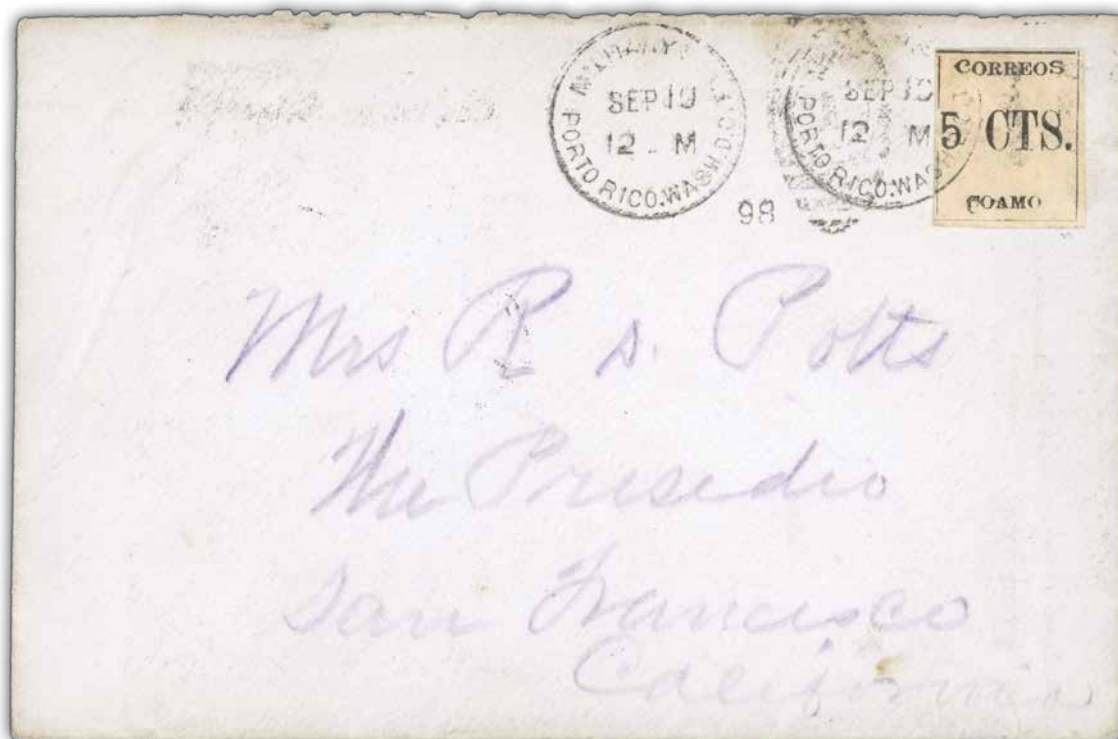 MILITARY
SEP 10
12 . M
PORTO RICO. WASH. D.C.
98
SEP 10
12 M
PORTO RICO. WASH
CORREOS
5 CTS.
COAMO
Mrs R s. Potts
The Presidio
San Francisco
California